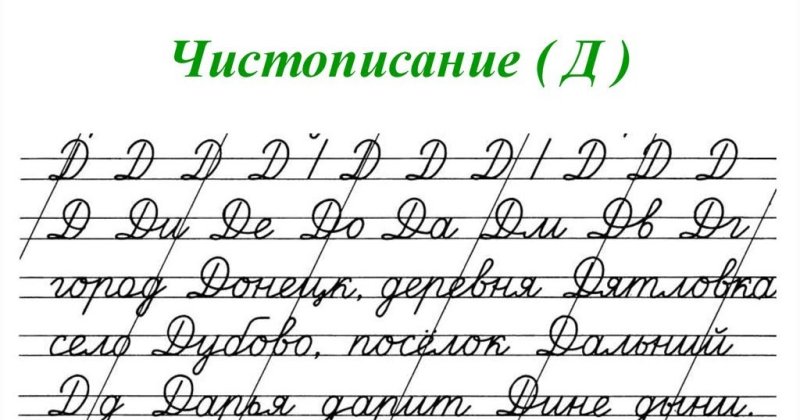 Чистописание ( Д )
Д Д Д Д / Д Д Д / Д Д Д
Д Ди Де До Да Дм Дв Дг
город Донецк, деревня Дятловка
село Дубово, посёлок Дальний
Д д Дарья дарит Дине дыни.